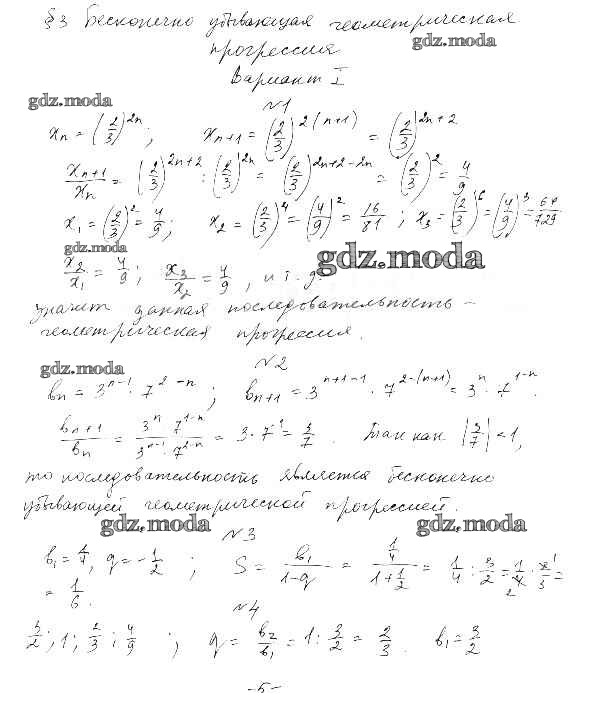 §3 Бесконечно убывающая геометрическая
gdz.moda
прогрессия.
Вариант I
gdz.moda
№1
xₙ = (2/3)²ⁿ; xₙ₊₁ = (2/3)²⁽ⁿ⁺¹⁾ = (2/3)²ⁿ⁺²
xₙ₊₁/xₙ = (2/3)²ⁿ⁺² : (2/3)²ⁿ = (2/3)²ⁿ⁺²⁻²ⁿ = (2/3)² = 4/9
x₁ = (2/3)² = 4/9; x₂ = (2/3)⁴ = (4/9)² = 16/81; x₃ = (2/3)⁶ = (4/9)³ = 64/729
gdz.moda
gdz.moda
x₂/x₁ = 4/9; x₃/x₂ = 4/9, и т.д.
значит данная последовательность –
геометрическая прогрессия.
gdz.moda
№2
bₙ = 3ⁿ⁻¹ · 7²⁻ⁿ; bₙ₊₁ = 3ⁿ⁺¹⁻¹ · 7²⁻⁽ⁿ⁺¹⁾ = 3ⁿ · 7¹⁻ⁿ
bₙ₊₁/bₙ = 3ⁿ · 7¹⁻ⁿ / 3ⁿ⁻¹ · 7²⁻ⁿ = 3 · 7⁻¹ = 3/7. Так как |3/7| < 1,
то последовательность является бесконечно
убывающей геометрической прогрессией.
gdz.moda
gdz.moda
№3
b₁ = 1/4, q = -1/2; S = b₁/1-q = 1/4 / 1+1/2 = 1/4 : 3/2 = 1/4 · 2/3 =
= 1/6.
№4
3/2; 1; 2/3; 4/9; q = b₂/b₁ = 1 : 3/2 = 2/3. b₁ = 3/2
-5-